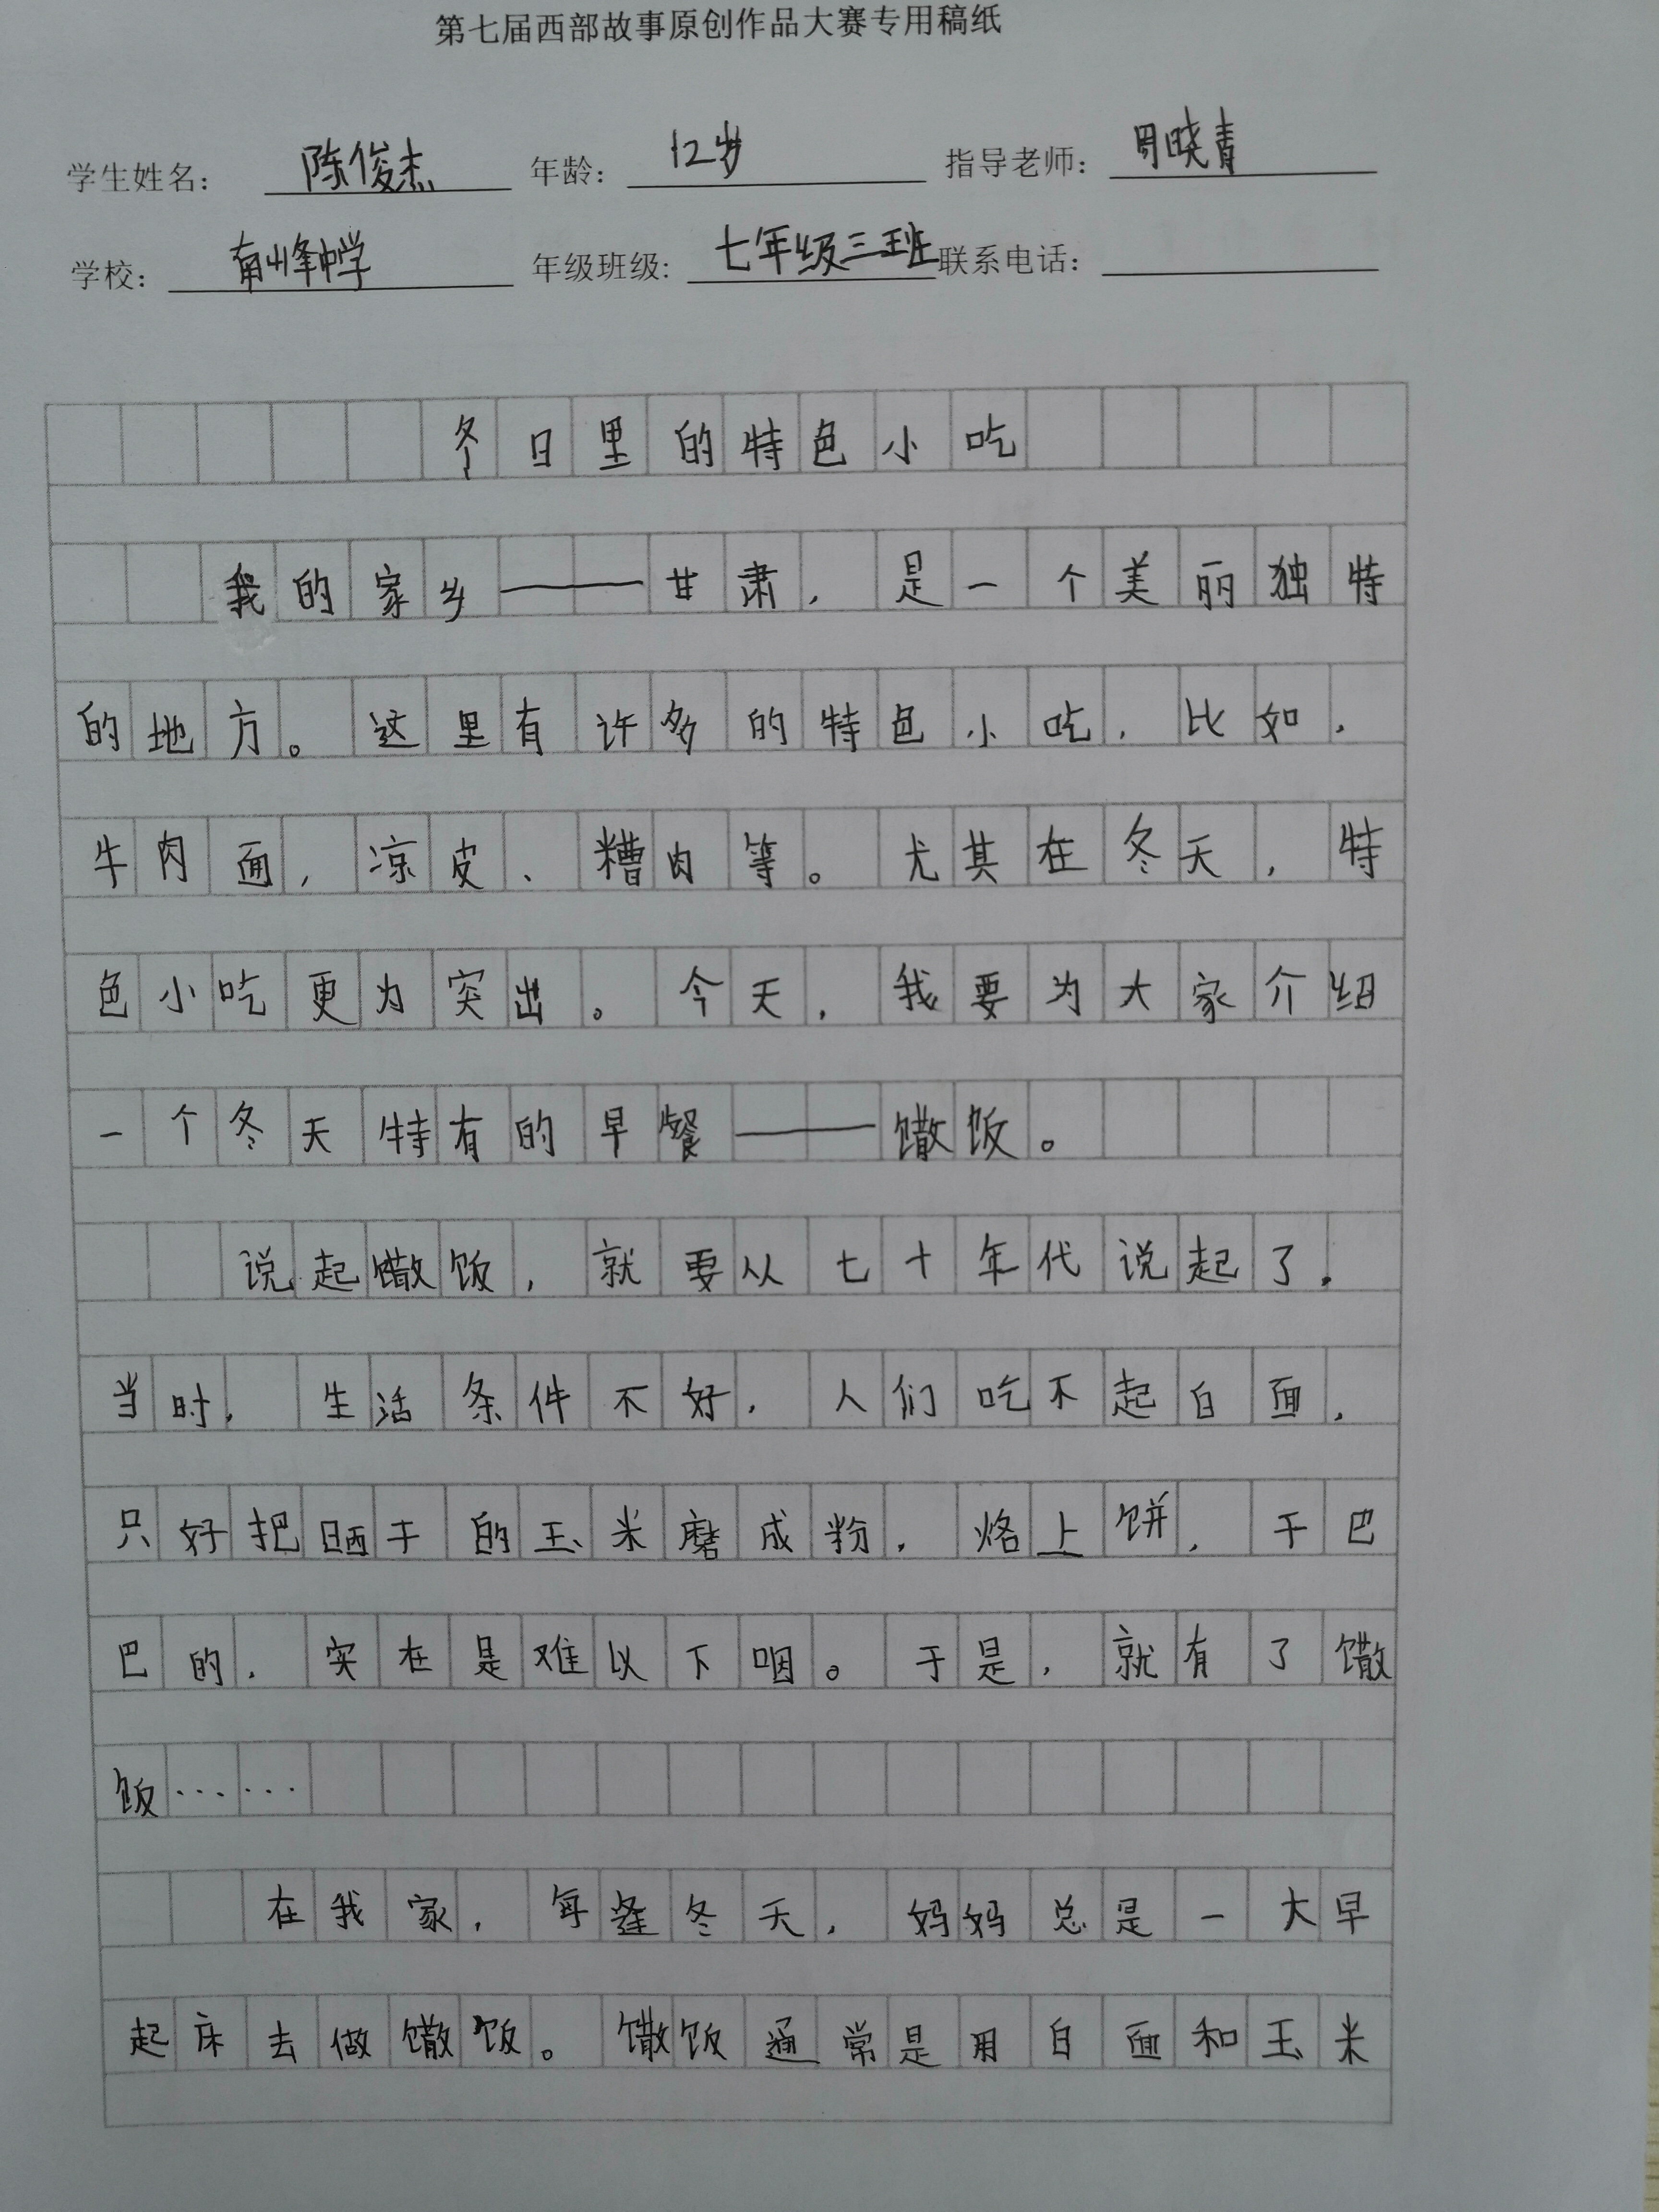 第七届西部故事原创作品大赛专用稿纸
学生姓名： 陈俊杰 年龄： 12岁 指导老师： 周晓青
学校： 南峰中学 年级班级: 七年级三班 联系电话：
冬日里的特色小吃
我的家乡——甘肃，是一个美丽独特
的地方。这里有许多的特色小吃，比如，
牛肉面，凉皮、糟肉等。尤其在冬天，特
色小吃更为突出。今天，我要为大家介绍
一个冬天特有的早餐——馓饭。
说起馓饭，就要从七十年代说起了。
当时，生活条件不好，人们吃不起白面，
只好把晒干的玉米磨成粉，烙上饼，干巴
巴的，实在是难以下咽。于是，就有了馓
饭……
在我家，每逢冬天，妈妈总是一大早
起床去做馓饭。馓饭通常是用白面和玉米